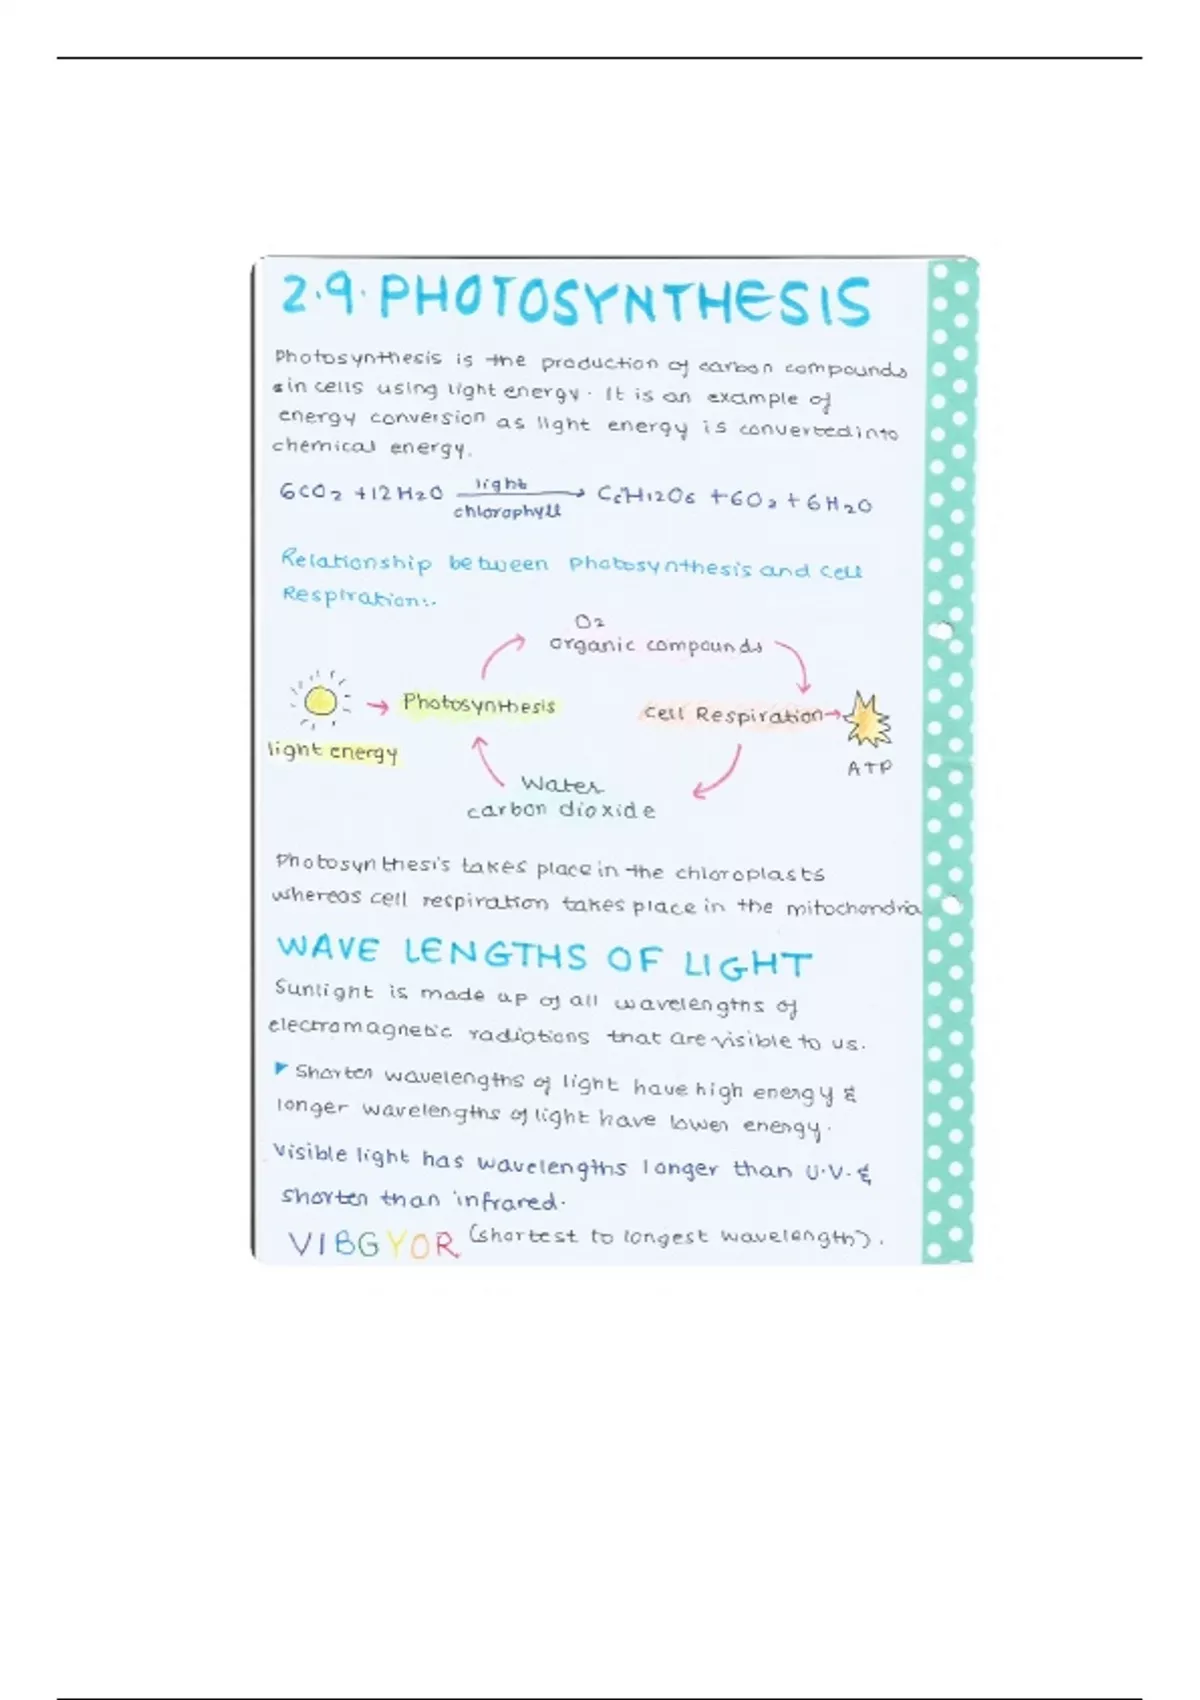 2.9. PHOTOSYNTHESIS
Photosynthesis is the production of carbon compounds
in cells using light energy. It is an example of
energy conversion as light energy is converted into
chemical energy.
6CO2 + 12H2O light chlorophyll → C6H12O6 + 6O2 + 6H2O
Relationship between Photosynthesis and Cell
Respiration:.
O2
organic compounds
Photosynthesis
Cell Respiration →
light energy
ATP
Water
carbon dioxide
Photosynthesis takes place in the chloroplasts
whereas cell respiration takes place in the mitochondria
WAVE LENGTHS OF LIGHT
Sunlight is made up of all wavelengths of
electromagnetic radiations that are visible to us.
▶ Shorter wavelengths of light have high energy &
longer wavelengths of light have lower energy.
Visible light has wavelengths longer than U.V. &
shorter than infrared.
VIBGYOR (shortest to longest wavelength).